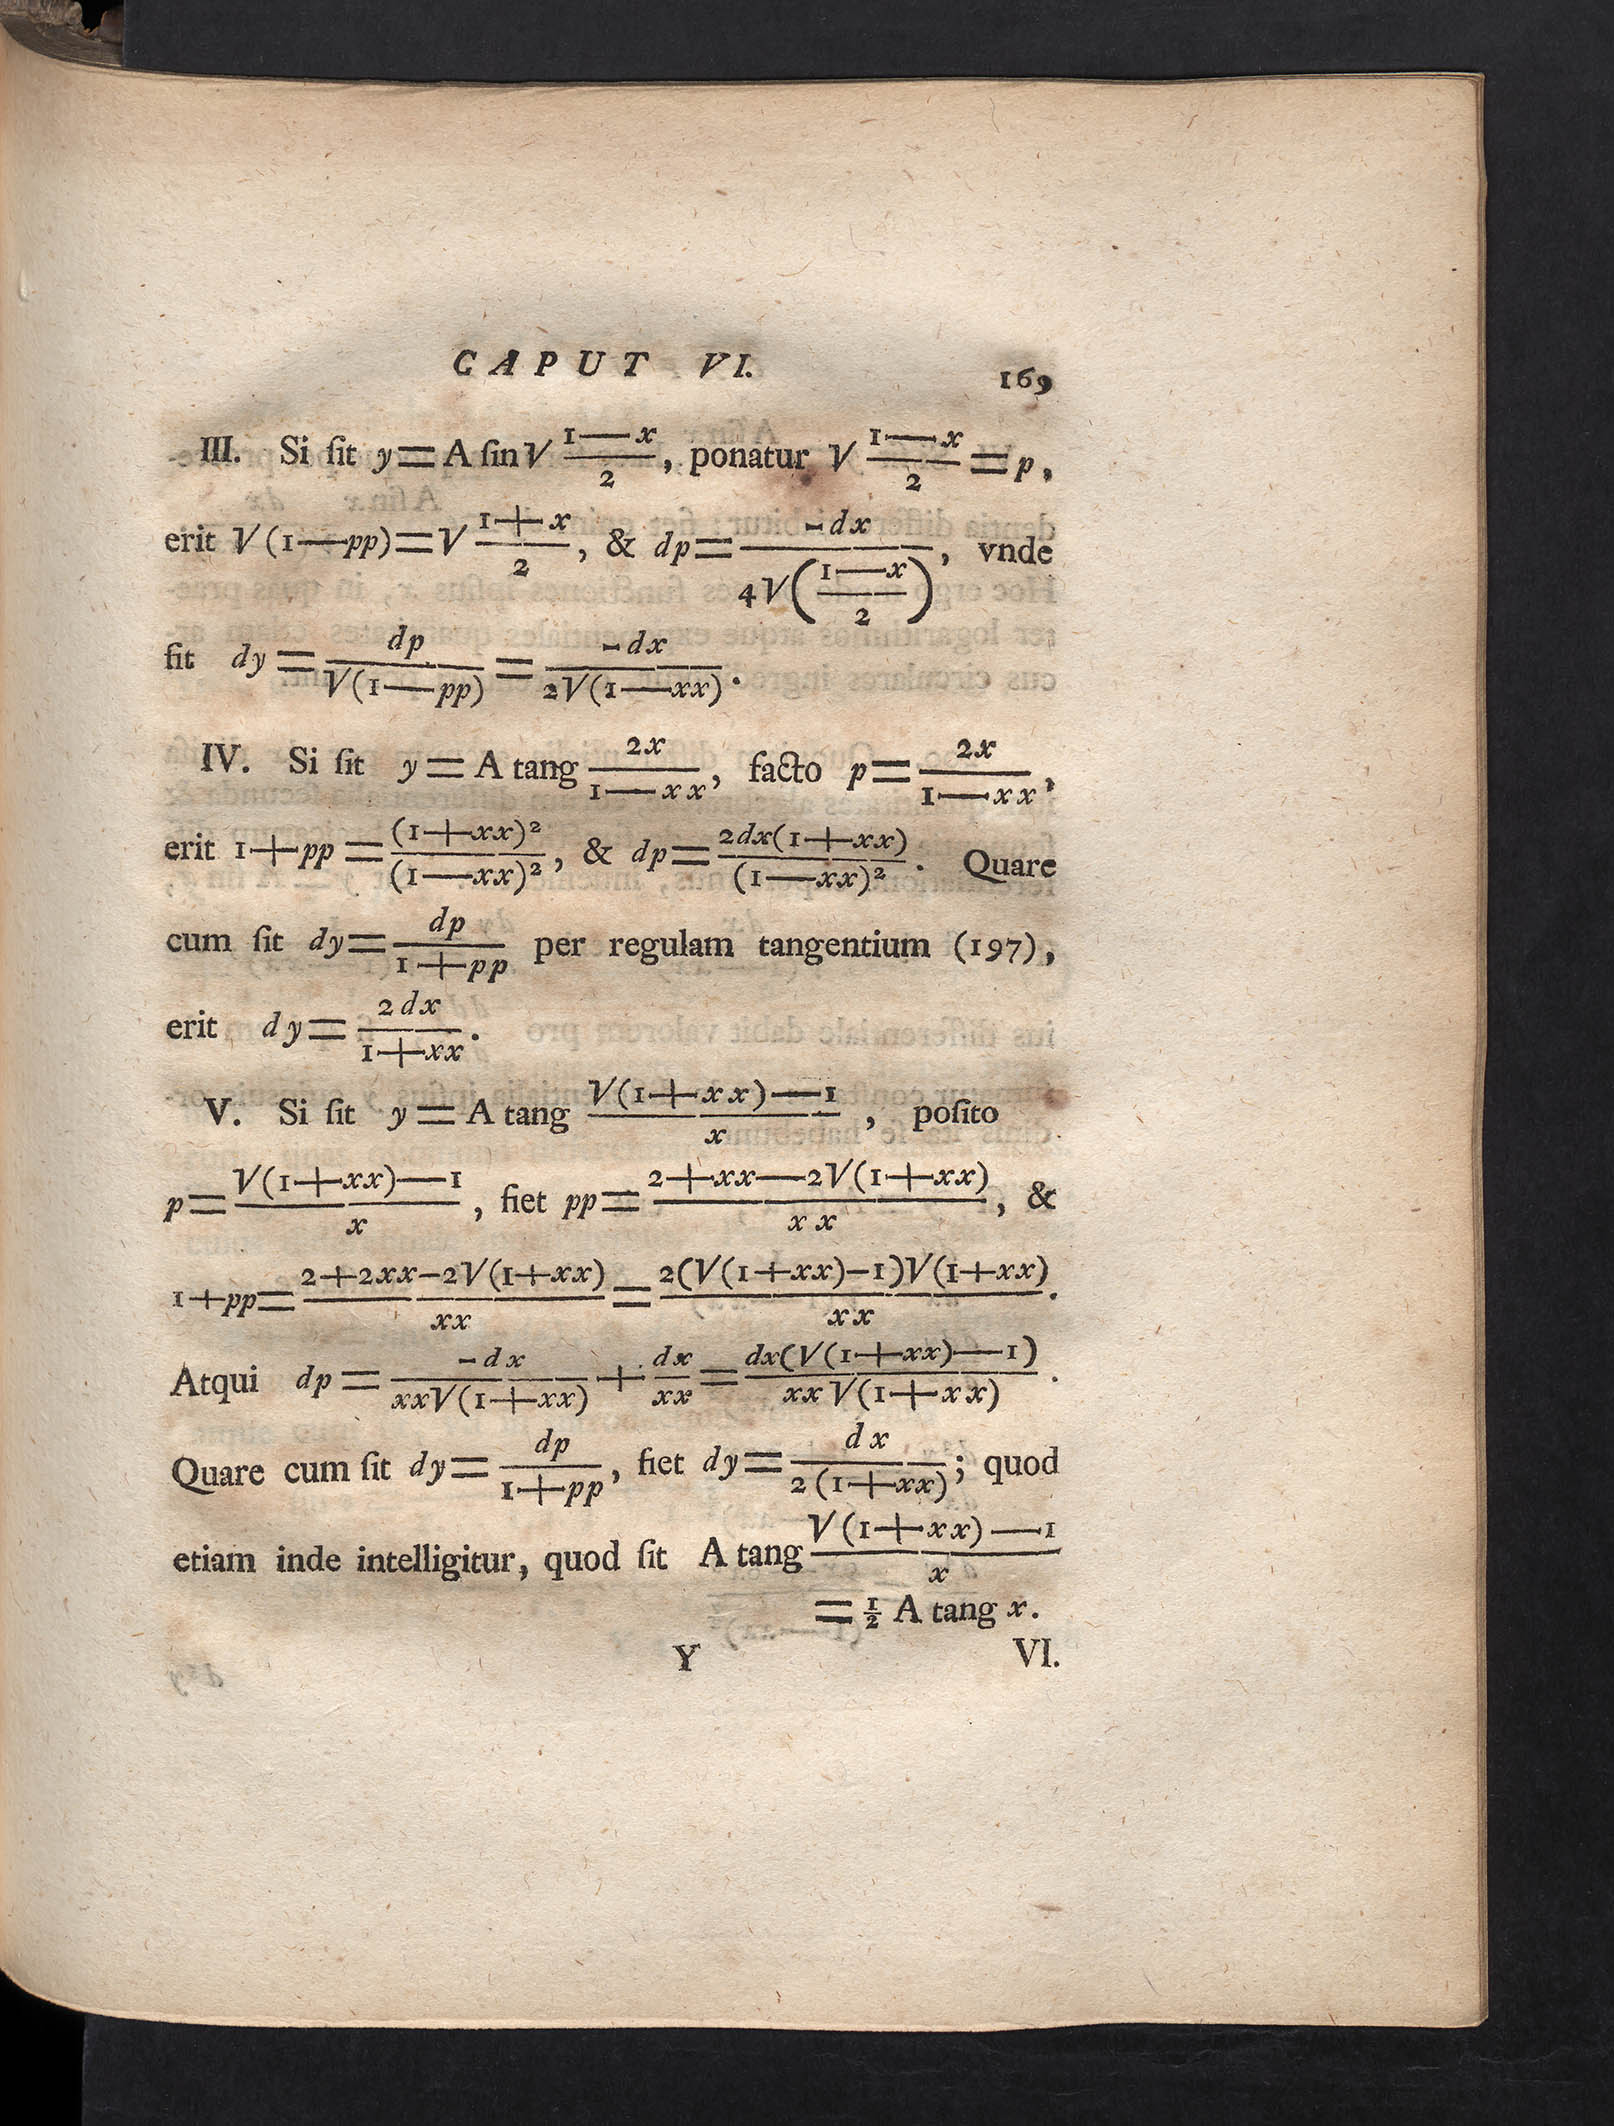 CAPUT VI. 169
III. Si ſit y = A ſin √ (1 — x)/2, ponatur √ (1 — x)/2 = p,
erit √(1 — pp) = √ (1 + x)/2, & dp = -dx/(4√((1 — x)/2)), vnde
fit dy = dp/√(1 — pp) = -dx/(2√(1 — xx)).
IV. Si ſit y = A tang 2x/(1 — xx), facto p = 2x/(1 — xx),
erit 1 + pp = (1 + xx)²/(1 — xx)², & dp = 2dx(1 + xx)/(1 — xx)². Quare
cum ſit dy = dp/(1 + pp) per regulam tangentium (197),
erit dy = 2dx/(1 + xx).
V. Si ſit y = A tang (√(1 + xx) — 1)/x, poſito
p = (√(1 + xx) — 1)/x, fiet pp = (2 + xx — 2√(1 + xx))/xx, &
1 + pp = (2 + 2xx - 2√(1 + xx))/xx = 2(√(1 + xx) - 1)√(1 + xx)/xx.
Atqui dp = -dx/(xx√(1 + xx)) + dx/xx = dx(√(1 + xx) — 1)/(xx√(1 + xx)).
Quare cum ſit dy = dp/(1 + pp), fiet dy = dx/(2(1 + xx)); quod
etiam inde intelligitur, quod ſit A tang (√(1 + xx) — 1)/x
= ½ A tang x.
Y VI.